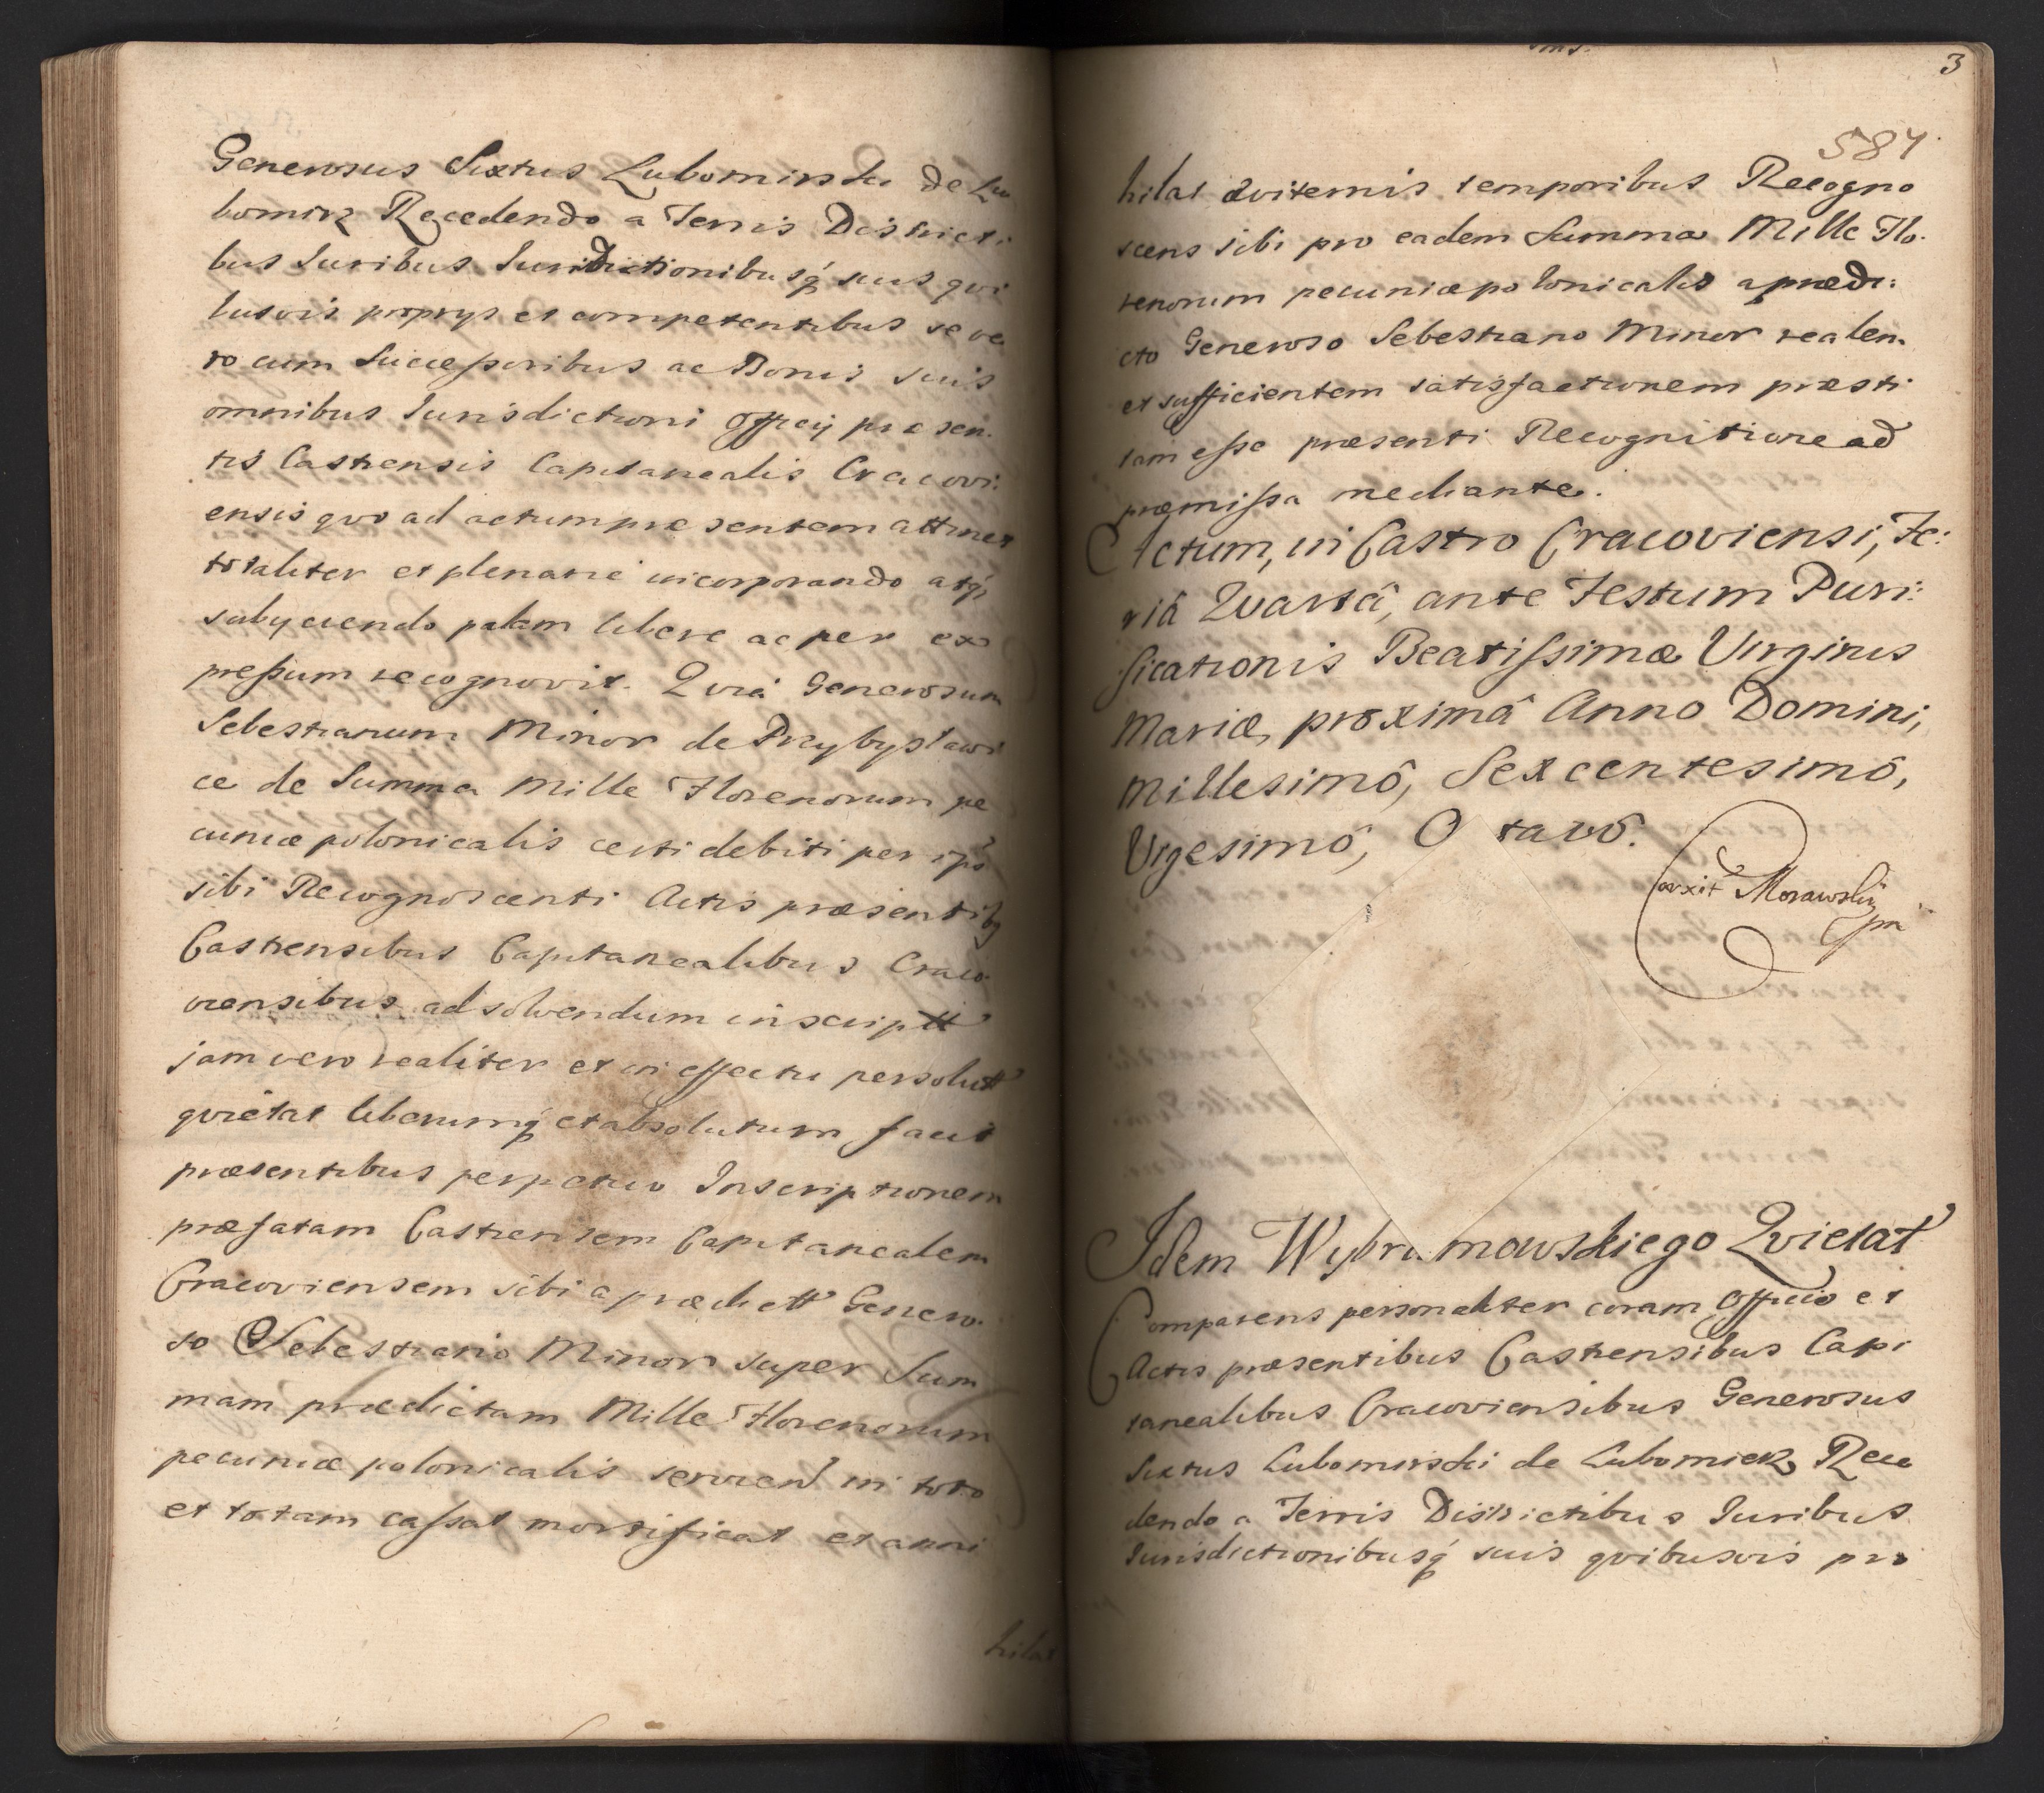 Generosus Sixtus Lubomirski de Lu
bomirz Recedendo a Terris Districti
bus Iuribus Iurisdictionibusq́ suis qvi
busvis proprys et competentibus se ve
ro cum Successoribus ac Bonis suis
omnibus Iurisdictioni Officij præsen.
tis Castrensis Capitanealis Cracovi:
ensis qvo ad actum præsentem attinet
totaliter et plenarie incorporando atq́,
subyciendo palam libere ac per ex
pressum recognovit. Qvia Generosum
Sebestianum Minor de Przybysławi
ce de Summa Mille Florenorum pe
cuniæ polonicalis certi debiti per ips
sibi Recognoscenti Actis præsentibq
Castrensibus Capitanealibus Craco
viensibus ad solvendum inscriptt
jam vero realiter et in effectu persolutt
qvietat liberumq́ et absolutum facit
præsentibus perpetuo Inscriptionem
præfatam Castrensem Capitanealem
Cracoviensem sibi a prædictt Genero.
so Sebestiano Minor super Sum
mam prædictam Mille Florenorum
pecuniæ polonicalis servien in toto
et totam cassat mortificat et anni
hilat
3
584
hilat æviternis temporibus Recogno
scens sibi pro eadem Summa Mille Flo.
renorum pecuniæ polonicalis a prædi:
cto Generoso Sebestiano Minor realem
et sufficientem satisfactionem præsti
tam esse præsenti Recognitione ad
præmissa mediante.
Actum, in Castro Cracoviensi, Fe:
riâ Qvartâ, ante Festum Puri:
ficationis Beatissimæ Virginis
Mariæ, proximâ Anno Domini,
Millesimô, Sexcentesimô,
Vigesimô, O tavô.
Corxit Morawski
mpr
Idem Wybra mowskiego Qvietat
Comparens personaliter coram Officio et
Actis præsentibus Castrensibus Capi
tanealibus Cracoviensibus Generosus
Sixtus Lubomirski de Lubomierz Rece
dendo a Terris Districtibus Iuribus
Iurisdictionibusq́ suis qvibusvis pro